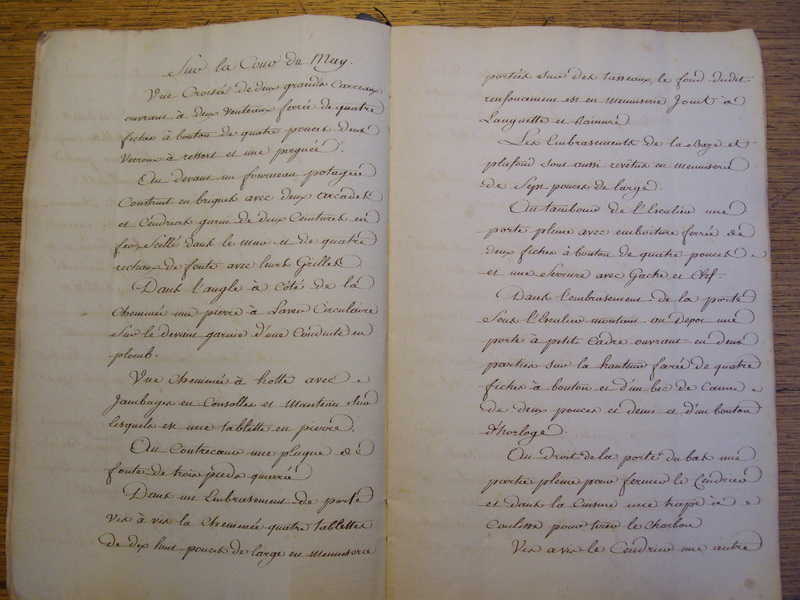 Sur la Cour du May.
Une Croisée de deux grands Carreaux
ouvrant à deux Venteaux ferrée de quatre
fiches à bouton de quatre pouces deux
Verroux à ressort et une
Au devant un fourneau potagée
Construit en briques avec deux arcades
et Cendriers garni de deux Ceintures en
fer, Scellé dans le mur et de quatre
rechaux de fonte avec leurs Grilles
Dans l'angle à côté de la
Cheminée une pierre à Laver Circulaire
Sur le devant garnie d'une Conduite en
plomb.
Une Cheminée à hotte avec
Jambages en Consolles et Manteau Sur
lesquels est une tablette en pierre.
Au Contrecœur une plaque de
fonte de trois pieds quarrée
Dans un Embrasement de porte
Vis à vis la Cheminée quatre tablettes
de dix huit pouces de large en menuiserie
portées sur des tasseaux, le fond dudit
renfoncement est en menuiserie Joint à
Languette et Rainure
Les Embrasements de la Baye et
plafond sont aussi revêtus en menuiserie
de Sept pouces de large.
Au tambour de l'Escalier une
porte pleine avec emboiture ferrée de
deux fiches à bouton de quatre pouces
et une serrure avec Gache et Clef.
Dans l'embrasement de la porte
Sous l'Escalier montant au Depot une
porte à petit Cadre ouvrant en deux
parties sur la hauteur farée de quatre
fiches à bouton et d'un bec de Canne
de deux pouces et demi et d'un bouton
d'horloge.
Au Droit de la porte du bas une
porte pleine pour fermer le Cendrier
et dans la Cuisine une trape à
Coulisse pour tirer le Charbon
Vis avis le Cendrier une autre